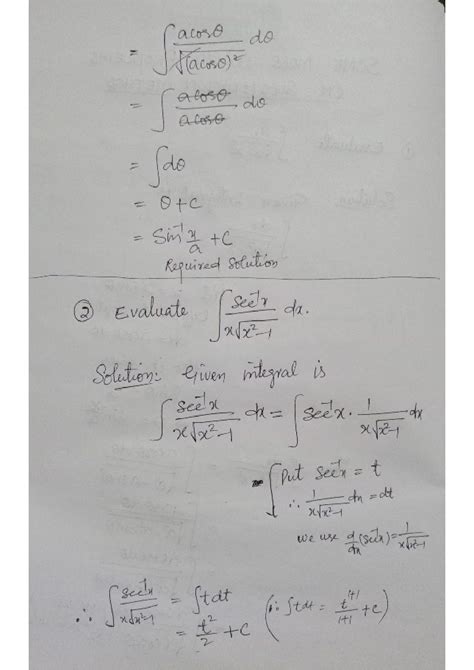 = ∫ acosθ/√(acosθ)² dθ
= ∫ acosθ/acosθ dθ
= ∫dθ
= θ+c
= Sin⁻¹ x/a + c
Required Solution
② Evaluate ∫ Sec⁻¹x/x√x²-1 dx.
Solution: Given integral is
∫ Sec⁻¹x/x√x²-1 dx = ∫ Sec⁻¹x · 1/x√x²-1 dx
Put Sec⁻¹x = t
∴ 1/x√x²-1 dx = dt
we use d/dx (Sec⁻¹x) = 1/x√x²-1
∴ ∫ Sec⁻¹x/x√x²-1 = ∫tdt (∵ ∫tdt = t¹⁺¹/1+1 + c)
= t²/2 + c